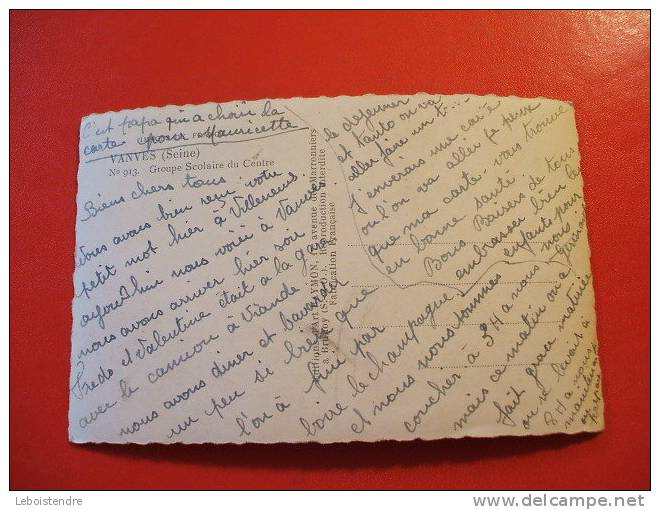 C'est papa qui a choisi la
carte pour Mauricette
VANVES (Seine)
No 913. Groupe Scolaire du Centre
Biens chers tous
avons bien reçu votre
petit mot hier à Villeneuve
aujourd'hui nous voici à Vanves
nous avons arriver hier soir
Fredo et Valentine était a la gare
avec le camion à Viande
nous avons diner et bavarder
un peu si bien que
l'on à fini par
boire le champagne
et nous nous sommes
coucher à 3 H a nous
mais ce matin on a
fait grace matinée
on se levait a
8 H
maintenant
le déjeuner
et tanto on va
aller faire un
J'enverais une carte
ou l'on va aller je peux
que ma carte vous trouve
en bonne santé
Bons Baisers de tous
embrasser bien les
enfants pour
nous
Editions d'Art RAYMON, avenue des Marronniers
à Brunoy (S.-&-O.). Reproduction interdite
Fabrication Française
Leboistendre
delcampe.net